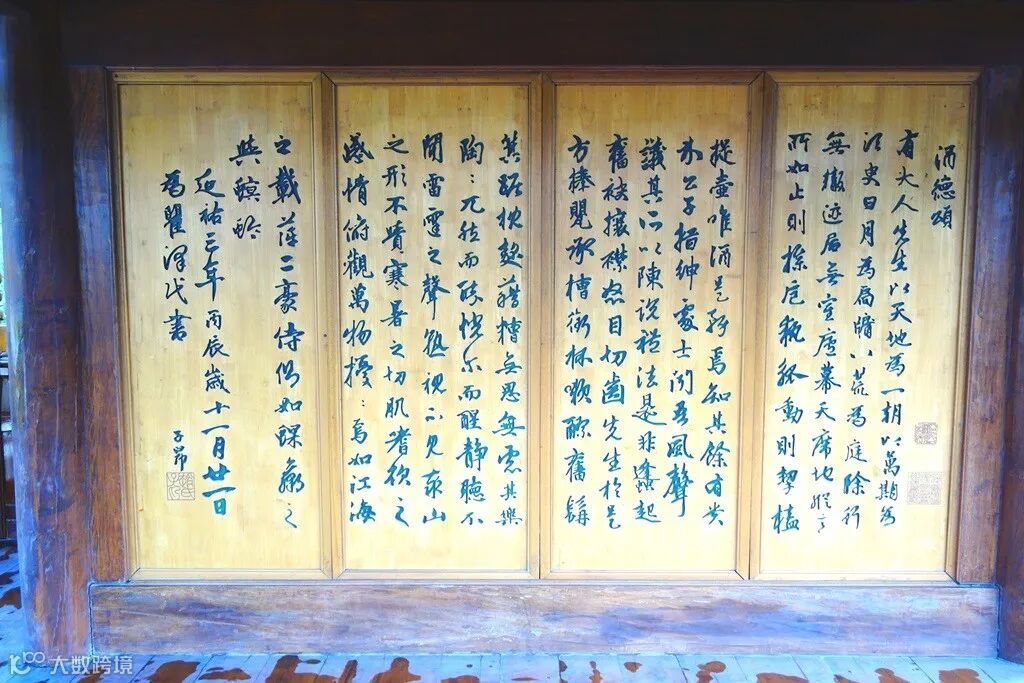 酒德頌
有大人先生以天地為一朝以萬期為
須臾日月為扃牖八荒為庭除行
無轍迹居無室廬幕天席地縱意
所如止則操巵執觚動則挈榼
提壺唯酒是務焉知其餘有貴
介公子搢紳處士聞吾風聲
議其所以陳說禮法是非蠭起
奮袂攘襟怒目切齒先生於是
方捧甖承槽銜杯漱醪奮髯
箕踞枕麴藉糟無思無慮其樂
陶：兀然而醉恍尔而醒靜聽不
聞雷霆之聲熟視不見泰山
之形不覺寒暑之切肌嗜欲之
感情俯觀萬物擾：焉如江海
之載萍二豪侍側如蜾蠃之
與螟蛉
延祐三年丙辰歲十一月廿一日
為瞿澤書
子昂
大数跨境